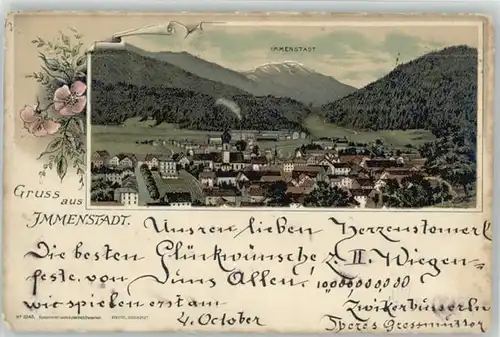 IMMENSTADT
Gruss aus
IMMENSTADT.
Unsren lieben Herzenstomerl
Die besten Glückwünsche z. II. Wiegen-
feste. von uns Allen! 10000000,000
wir spielen erst am Zwikerbusserln
4. October Theres Grossmutter